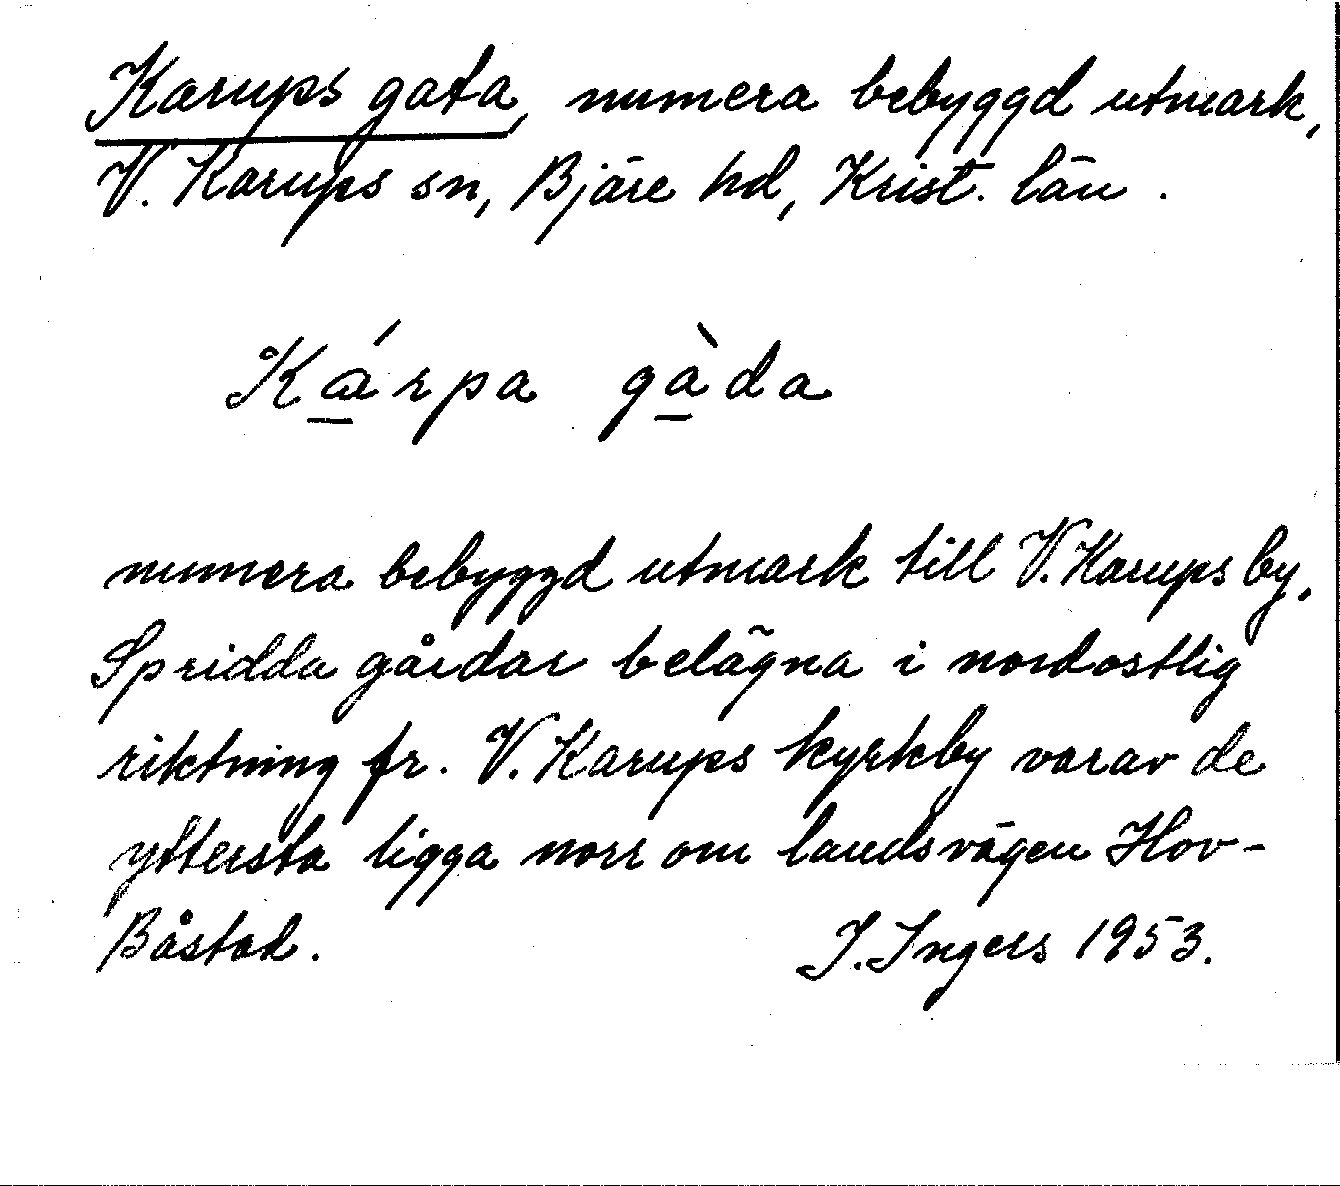 Karups gata, numera bebyggd utmark,
V. Karups sn, Bjäre hd, Krist. län.
Kárpa gàda
numera bebyggd utmark till V. Karups by.
Spridda gårdar belägna i nordostlig
riktning fr. V. Karups kyrkby varav de
yttersta ligga norr om landsvägen Hov-
Båstad.
I. Ingers 1953.